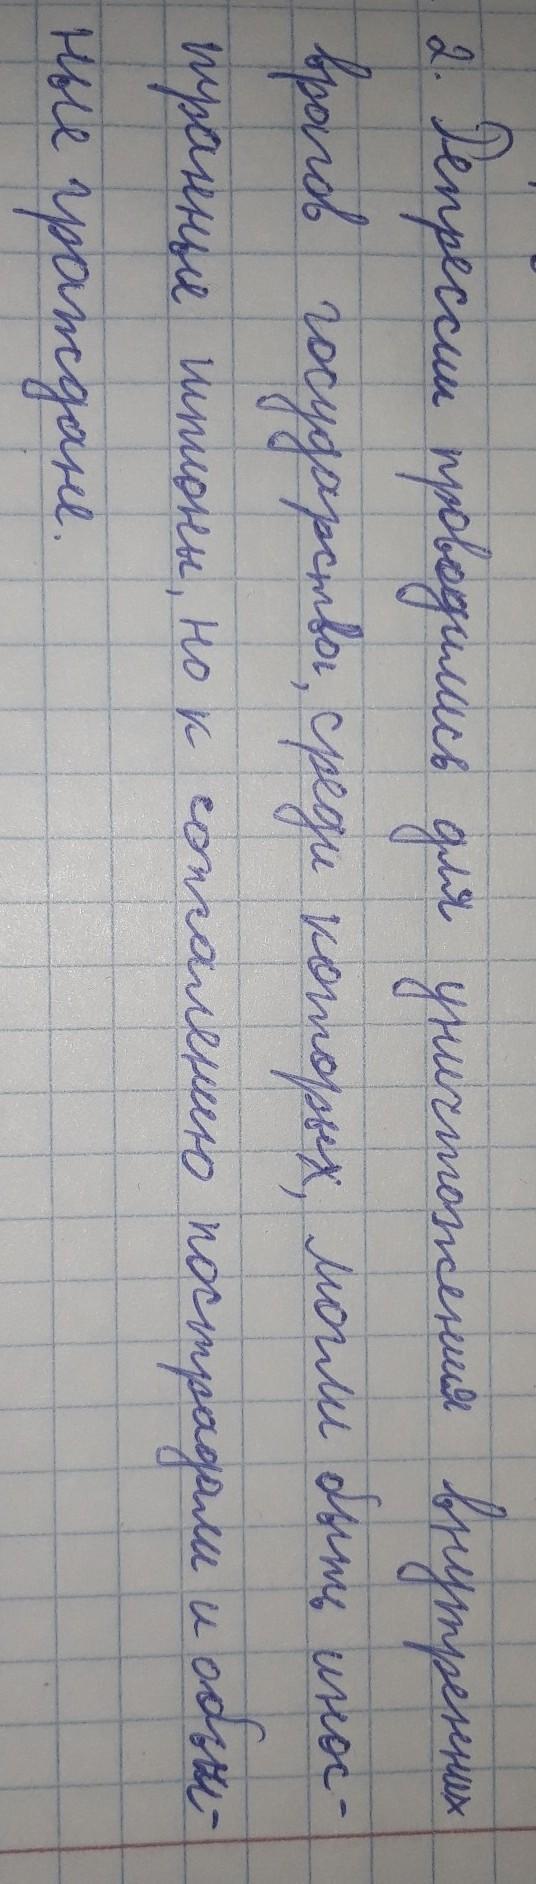 2. Репрессии проводились для уничтожения внутренних
врагов государства, среди которых, могли быть инос-
транные шпионы, но к сожалению пострадали и обыч-
ные граждане.